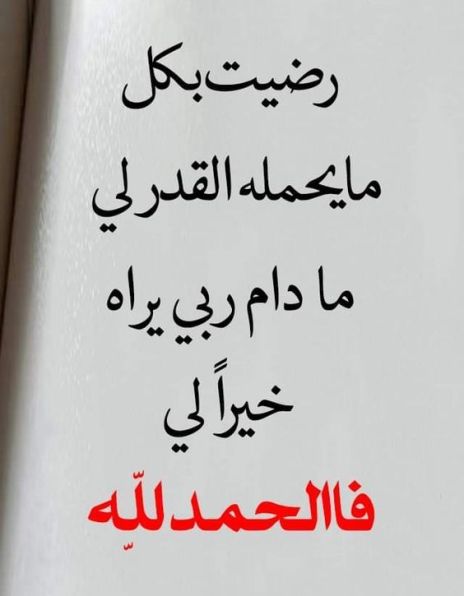 رضيت بكل
مايحمله القدر لي
ما دام ربي يراه
خيراً لي
فاالحمدللّهِ